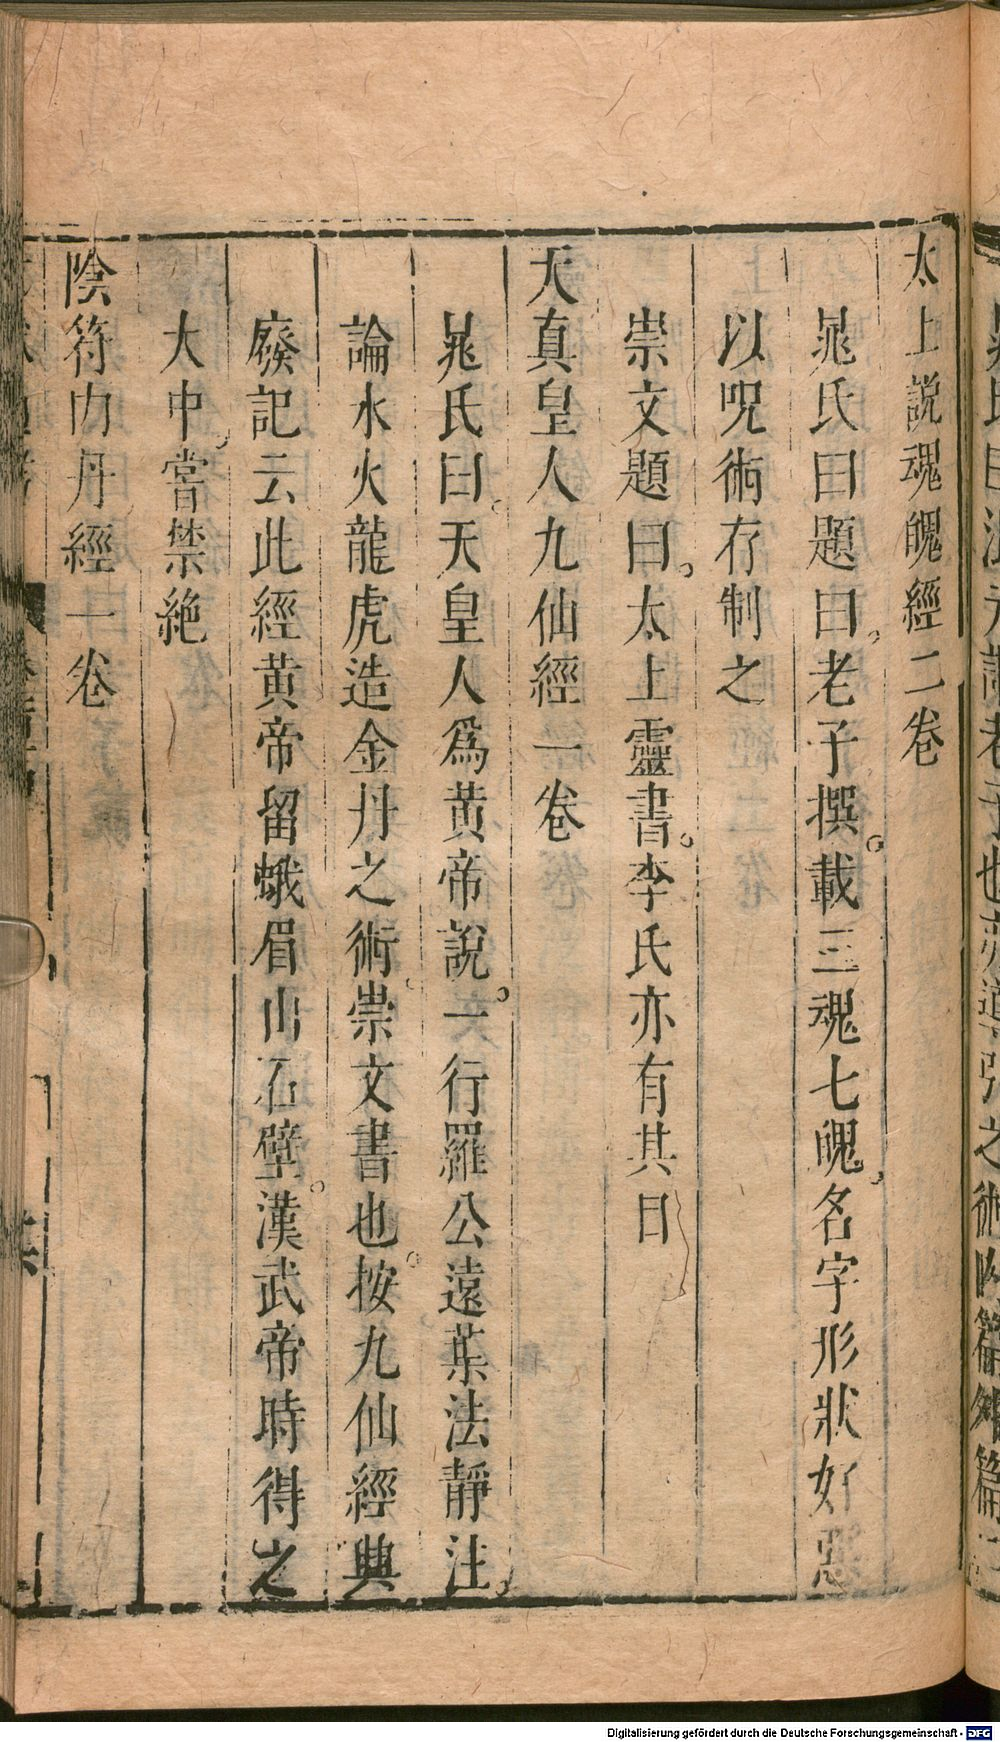 太上說魂魄經二卷
晁氏曰題曰老子撰載三魂七魄名字形狀好惡
以呪術存制之
崇文題曰太上靈書李氏亦有其目
天真皇人九仙經一卷
晁氏曰天皇人爲黃帝說一行羅公遠葉法靜注
論水火龍虎造金丹之術崇文書也按九仙經興
廢記云此經黃帝留蛾眉山石壁漢武帝時得之
大中嘗禁絶
陰符内丹經一卷
Digitalisierung gefördert durch die Deutsche Forschungsgemeinschaft - DFG